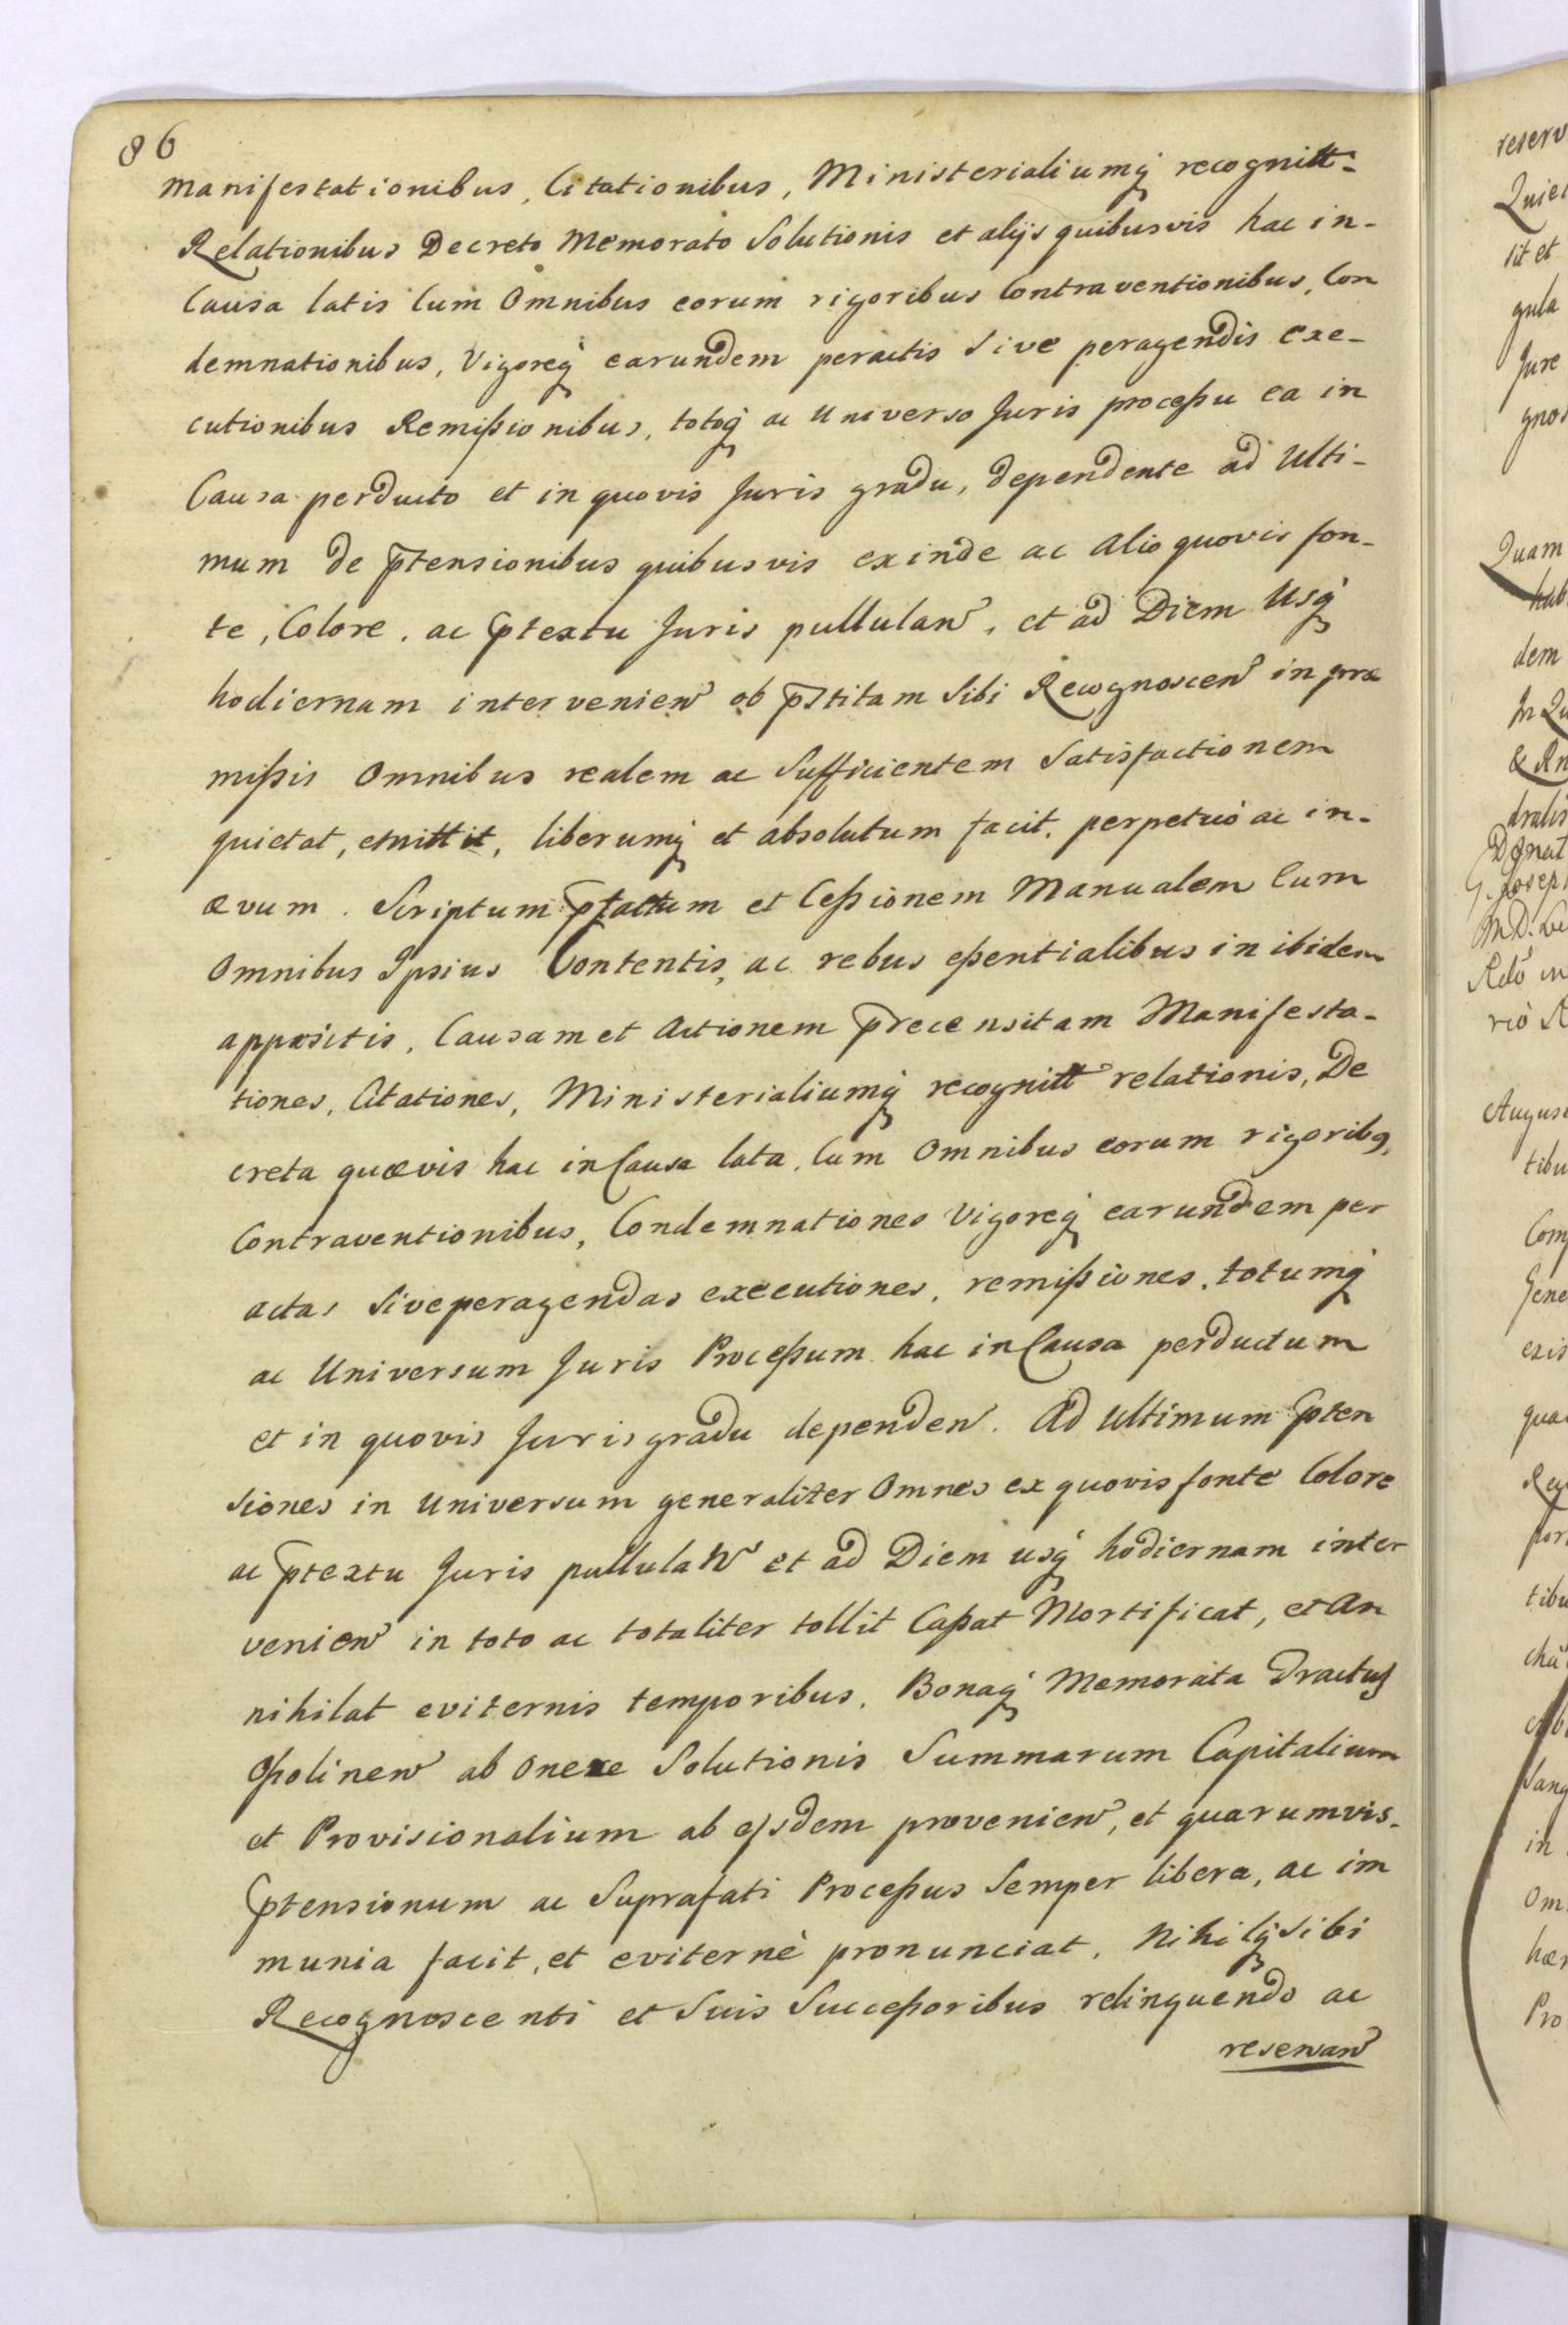 86
manifestationibus, Citationibus, Ministerialiumq́ recognitt-
Relationibus Decreto Memorato Solutionis et alijs quibusvis hac in-
Causa latis Cum Omnibus eorum rigoribus Contraventionibus, Con
demnationibus, Vigoreq́ earundem peractis sive peragendis exe-
cutionibus Remißionibus, totoq́ ac Universo Juris proceßu ea in
Causa perducto et in quovis Juris gradu, dependente ad Ulti-
mum de p̄tensionibus quibusvis exinde ac alio quovis fon-
te, Colore, ac p̄textu Juris pullulan̄, et ad Diem Usq́
hodiernam intervenien̄ ob p̄stitam Sibi Recognoscen̄ in præ
mißis Omnibus realem ac Sufficientem Satisfactionem
quietat, emittit, liberumq́ et absolutum facit, perpetuò ac in-
ævum. Scriptum p̄factum et Ceßionem Manualem Cum
Omnibus Ipsius Contentis, ac rebus eßentialibus in ibidem
appositis, Causam et Actionem p̄recensitam Manifesta-
tiones, Citationes, Ministerialiumq́ recognitt relationis, De
creta quævis hac in Causa lata, Cum Omnibus eorum rigorib9,
Contraventionibus, Condemnationes Vigoreq́ earundem per
actas sive peragendas executiones, remißiones, totumq́
ac Universum Juris Proceßum hac in Causa perductum
et in quovis Juris gradu dependen̄. Ad Ultimum p̄ten
siones in Universum generaliter Omnes ex quovis fonte Colore
ac p̄textu Juris pullulan̄ et ad Diem usq́ hodiernam inter
venien̄ in toto ac totaliter tollit Caßat Mortificat, et An
nihilat eviternis temporibus, Bonaq́ Memorata Tractus
Opolinen̄ ab onere Solutionis Summarum Capitalium
et Provisionalium ab ejsdem provenien̄, et quarumvis-
p̄tensionum ac Suprafati Proceßus Semper libera, ac im
munia facit, et eviternè pronunciat, Nihilq́ Sibi
Recognoscenti et Suis Succeßoribus relinquendo ac
reservan̄
reserv
Quie
sit et
gula
Jure
gnos
Quam
hab
dem
In Qu
dralis
Joseph
August
tibu
Com
Gene
exis
qua
tibu
Sang
in
Om
hær
Pro